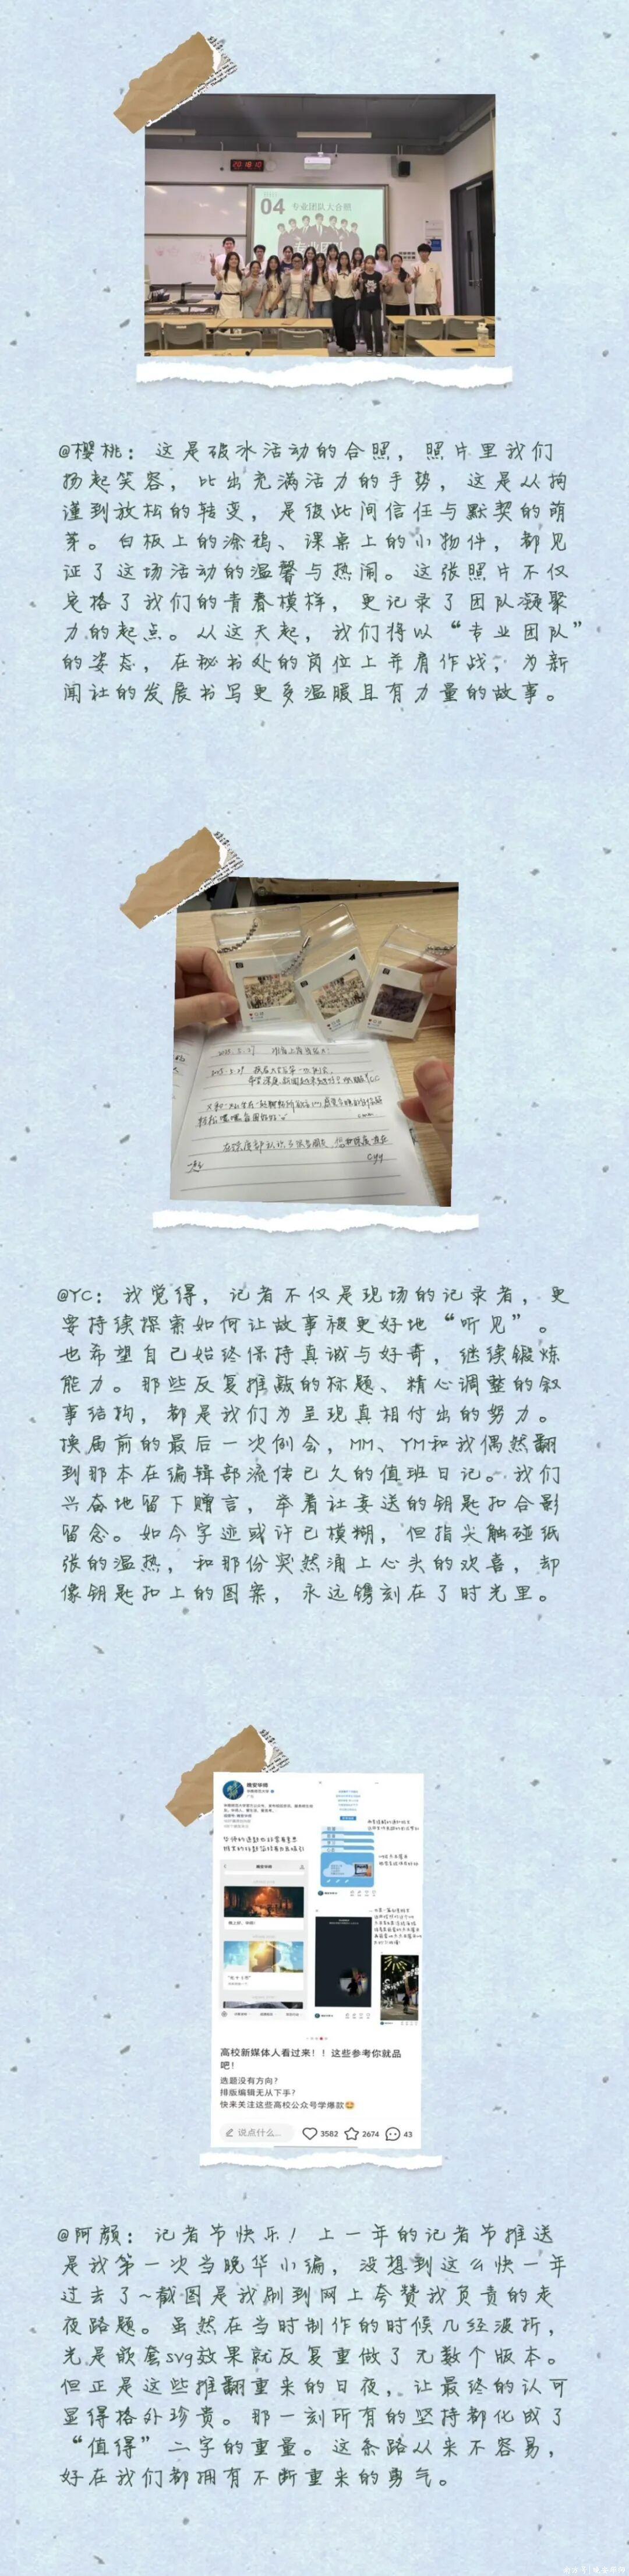 04 专业团队大合照
@樱桃：这是破冰活动的合照，照片里我们
扬起笑容，比出充满活力的手势，这是从拘
谨到放松的转变，是彼此间信任与默契的萌
芽。白板上的涂鸦、课桌上的小物件，都见
证了这场活动的温馨与热闹。这张照片不仅
定格了我们的青春模样，更记录了团队凝聚
力的起点。从这天起，我们将以“专业团队”
的姿态，在秘书处的岗位上并肩作战，为新
闻社的发展书写更多温暖且有力量的故事。
@YC：我觉得，记者不仅是现场的记录者，更
要持续探索如何让故事被更好地“听见”。
也希望自己始终保持真诚与好奇，继续锻炼
能力。那些反复推敲的标题、精心调整的叙
事结构，都是我们为呈现真相付出的努力。
换届前的最后一次例会，MM、YM和我偶然翻
到那本在编辑部流传已久的值班日记。我们
兴奋地留下赠言，举着社委送的钥匙扣合影
留念。如今字迹或许已模糊，但指尖触碰纸
张的温热，和那份突然涌上心头的欢喜，却
像钥匙扣上的图案，永远镌刻在了时光里。
晚安华师
晚安华师
晚上好，华师！
高校新媒体人看过来！！这些参考你就品
吧！
选题没有方向？
排版编辑无从下手？
快来关注这些高校公众号学爆款🤩
说点什么... 3582 2674 43
@阿颜：记者节快乐！上一年的记者节推送
是我第一次当晚华小编，没想到这么快一年
过去了~截图是我刷到网上夸赞我负责的走
夜路题。虽然在当时制作的时候几经波折，
光是嵌套svg效果就反复重做了无数个版本。
但正是这些推翻重来的日夜，让最终的认可
显得格外珍贵。那一刻所有的坚持都化成了
“值得”二字的重量。这条路从来不容易，
好在我们都拥有不断重来的勇气。